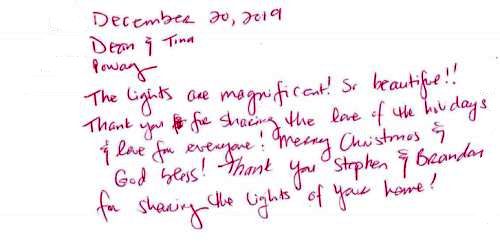 December 20, 2019
Dean & Tina
Poway
The Lights are magnificent! So beautiful!!
Thank you for sharing the love of the holidays
& love for everyone! Merry Christmas &
God bless! Thank you Stephen & Brandon
for sharing the Lights of your home!